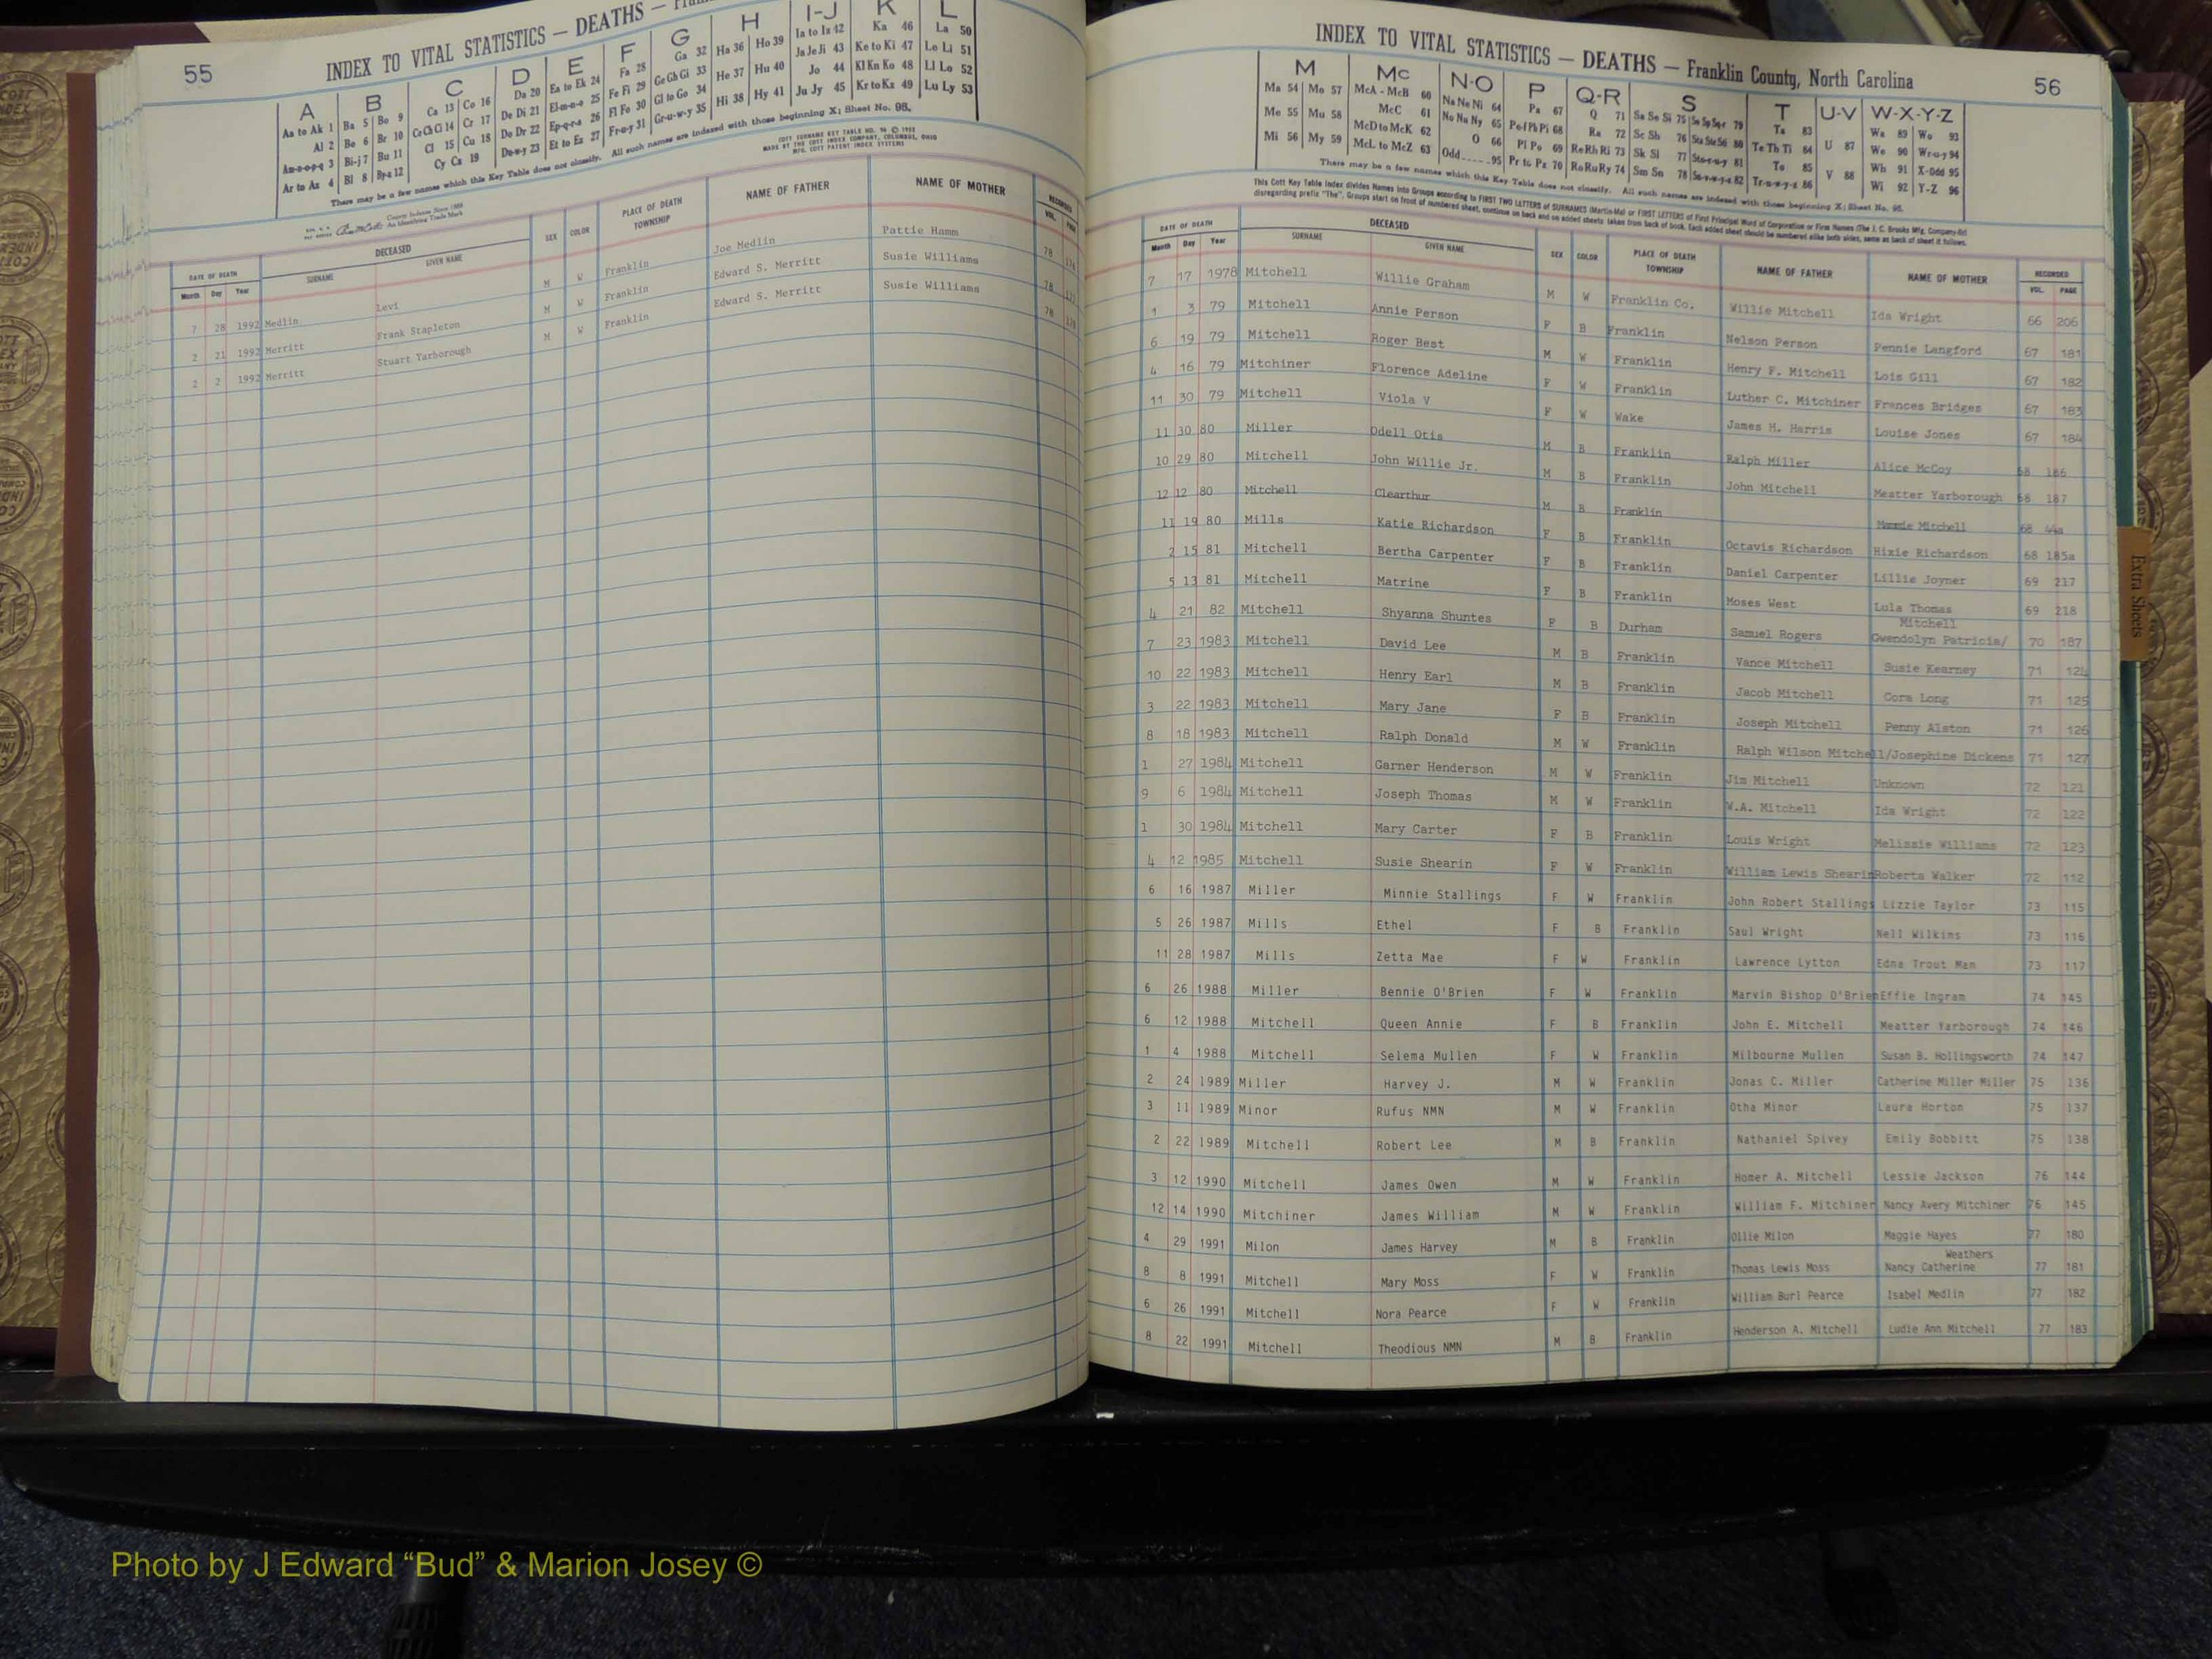 55
INDEX TO VITAL STATISTICS — DEATHS —
A B C D E F G H I-J K L
Aa to Ak 1 Ba 5 Bo 9 Ca 13 Co 16 Da 20 Ea to Ek 24 Fa 28 Ga 32 Ha 36 Ho 39 Ia to Iz 42 Ka 46 La 50
Al 2 Be 6 Br 10 Ce Ch Ci 14 Cr 17 De Di 21 El-m-n-o 25 Fe Fi 29 Ge Gh Gi 33 He 37 Hu 40 Ja Je Ji 43 Ke to Ki 47 Le Li 51
An-o-p-q 3 Bi-j 7 Bu 11 Cl 15 Cu 18 Do Dr 22 Ep-q-r-s 26 Fl Fo 30 Gl to Go 34 Hi 38 Hy 41 Jo 44 Kl Kn Ko 48 Ll Lo 52
Ar to Az 4 Bl 8 By-z 12 Cy Cz 19 Du-w-y 23 Et to Ez 27 Fr-u-y 31 Gr-u-w-y 35 Ju Jy 45 Kr to Kz 49 Lu Ly 53
There may be a few names which this Key Table does not classify. All such names are indexed with those beginning X; Sheet No. 95.
DATE OF DEATH DECEASED SEX COLOR PLACE OF DEATH TOWNSHIP NAME OF FATHER NAME OF MOTHER RECORDED
Month Day Year SURNAME GIVEN NAME VOL. PAGE
7 28 1992 Medlin Levi M W Franklin Joe Medlin Pattie Hamm 78
2 21 1992 Merritt Frank Stapleton M W Franklin Edward S. Merritt Susie Williams 78
2 2 1992 Merritt Stuart Yarborough M W Franklin Edward S. Merritt Susie Williams 78
INDEX TO VITAL STATISTICS — DEATHS — Franklin County, North Carolina
56
M Mc N-O P Q-R S T U-V W-X-Y-Z
Ma 54 Mo 57 McA - McB 60 Na Ne Ni 64 Pa 67 Q 71 Sa Se Si 75 79 Ta 83 U 87 Wa 89 Wo 93
Me 55 Mu 58 McC 61 No Nu Ny 65 Pe-f Ph Pi 68 Ra 72 Sc Sh 76 80 Te Th Ti 84 We 90 Wr-u-y 94
Mi 56 My 59 McD to McK 62 O 66 Pl Po 69 Re Rh Ri 73 Sk Sl 77 81 To 85 V 88 Wh 91 X-Odd 95
McL to McZ 63 Odd 95 Pr to Pz 70 Ro Ru Ry 74 Sm Sn 78 82 Tr-u-w-y-z 86 Wi 92 Y-Z 96
There may be a few names which this Key Table does not classify. All such names are indexed with those beginning X; Sheet No. 95.
This Cott Key Table Index divides Names into Groups according to FIRST TWO LETTERS of SURNAMES (Martin-Ma) or FIRST LETTERS of First Principal Word of Corporation or Firm Names (The J. C. Brooks Mfg. Company-Br)
disregarding prefix "The". Groups start on front of numbered sheet, continue on back and on added sheets taken from back of book. Each added sheet should be numbered alike both sides, same as back of sheet it follows.
DATE OF DEATH DECEASED SEX COLOR PLACE OF DEATH TOWNSHIP NAME OF FATHER NAME OF MOTHER RECORDED
Month Day Year SURNAME GIVEN NAME VOL. PAGE
7 17 1978 Mitchell Willie Graham M W Franklin Co. Willie Mitchell Ida Wright 66 206
1 3 79 Mitchell Annie Person F B Franklin Nelson Person Pennie Langford 67 181
6 19 79 Mitchell Roger Best M W Franklin Henry F. Mitchell Lois Gill 67 182
4 16 79 Mitchiner Florence Adeline F W Franklin Luther C. Mitchiner Frances Bridges 67 183
11 30 79 Mitchell Viola V F W Wake James H. Harris Louise Jones 67 184
11 30 80 Miller Odell Otis M B Franklin Ralph Miller Alice McCoy 68 186
10 29 80 Mitchell John Willie Jr. M B Franklin John Mitchell Meatter Yarborough 68 187
12 12 80 Mitchell Clearthur M B Franklin Mitchell 68
11 19 80 Mills Katie Richardson F B Franklin Octavis Richardson Hixie Richardson 68 185a
2 15 81 Mitchell Bertha Carpenter F B Franklin Daniel Carpenter Lillie Joyner 69 217
5 13 81 Mitchell Matrine F B Franklin Moses West Lula Thomas 69 218
4 21 82 Mitchell Shyanna Shuntes F B Durham Samuel Rogers Gwendolyn Patricia/ Mitchell 70 187
7 23 1983 Mitchell David Lee M B Franklin Vance Mitchell Susie Kearney 71 124
10 22 1983 Mitchell Henry Earl M B Franklin Jacob Mitchell Cora Long 71 125
3 22 1983 Mitchell Mary Jane F B Franklin Joseph Mitchell Penny Alston 71 126
8 18 1983 Mitchell Ralph Donald M W Franklin Ralph Wilson Mitchell/Josephine Dickens 71 127
1 27 1984 Mitchell Garner Henderson M W Franklin Jim Mitchell Unknown 72 121
9 6 1984 Mitchell Joseph Thomas M W Franklin W.A. Mitchell Ida Wright 72 122
1 30 1984 Mitchell Mary Carter F B Franklin Louis Wright Melissie Williams 72 123
4 12 1985 Mitchell Susie Shearin F W Franklin William Lewis Shearin Roberta Walker 72 112
6 16 1987 Miller Minnie Stallings F W Franklin John Robert Stallings Lizzie Taylor 73 115
5 26 1987 Mills Ethel F B Franklin Saul Wright Nell Wilkins 73 116
11 28 1987 Mills Zetta Mae F W Franklin Lawrence Lytton Edna Trout Man 73 117
6 26 1988 Miller Bennie O'Brien F W Franklin Marvin Bishop O'Brien Effie Ingram 74 145
6 12 1988 Mitchell Queen Annie F B Franklin John E. Mitchell Meatter Yarborough 74 146
1 4 1988 Mitchell Selema Mullen F W Franklin Milbourne Mullen Susan B. Hollingsworth 74 147
2 24 1989 Miller Harvey J. M W Franklin Jonas C. Miller Catherine Miller Miller 75 136
3 11 1989 Minor Rufus NMN M W Franklin Otha Minor Laura Horton 75 137
2 22 1989 Mitchell Robert Lee M B Franklin Nathaniel Spivey Emily Bobbitt 75 138
3 12 1990 Mitchell James Owen M W Franklin Homer A. Mitchell Lessie Jackson 76 144
12 14 1990 Mitchiner James William M W Franklin William F. Mitchiner Nancy Avery Mitchiner 76 145
4 29 1991 Milon James Harvey M B Franklin Ollie Milon Maggie Hayes 77 180
8 8 1991 Mitchell Mary Moss F W Franklin Thomas Lewis Moss Nancy Catherine Weathers 77 181
6 26 1991 Mitchell Nora Pearce F W Franklin William Burl Pearce Isabel Medlin 77 182
8 22 1991 Mitchell Theodious NMN M B Franklin Henderson A. Mitchell Ludie Ann Mitchell 77 183
Extra Sheets
Photo by J Edward “Bud” & Marion Josey ©